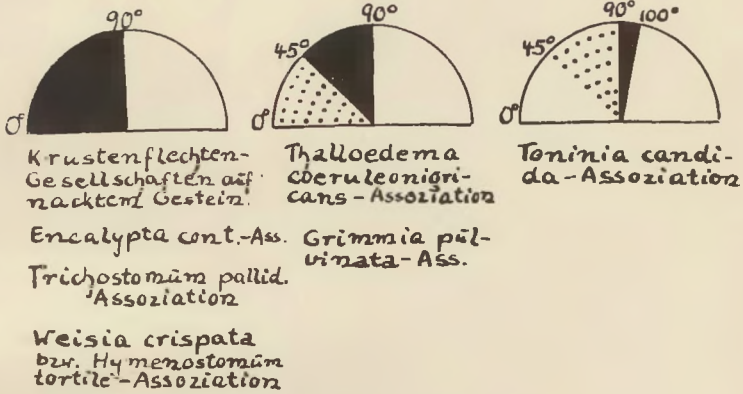 90°
0°
Krustenflechten-
Gesellschaften auf
nacktem Gestein.
Encalypta cont.-Ass.
Trichostomum pallid.
Assoziation
Weisia crispata
bzw. Hymenostomum
tortile-Assoziation
90°
45°
0°
Thalloedema
coeruleonigri-
cans-Assoziation
Grimmia pul-
vinata-Ass.
90° 100°
45°
0°
Toninia candi-
da-Assoziation